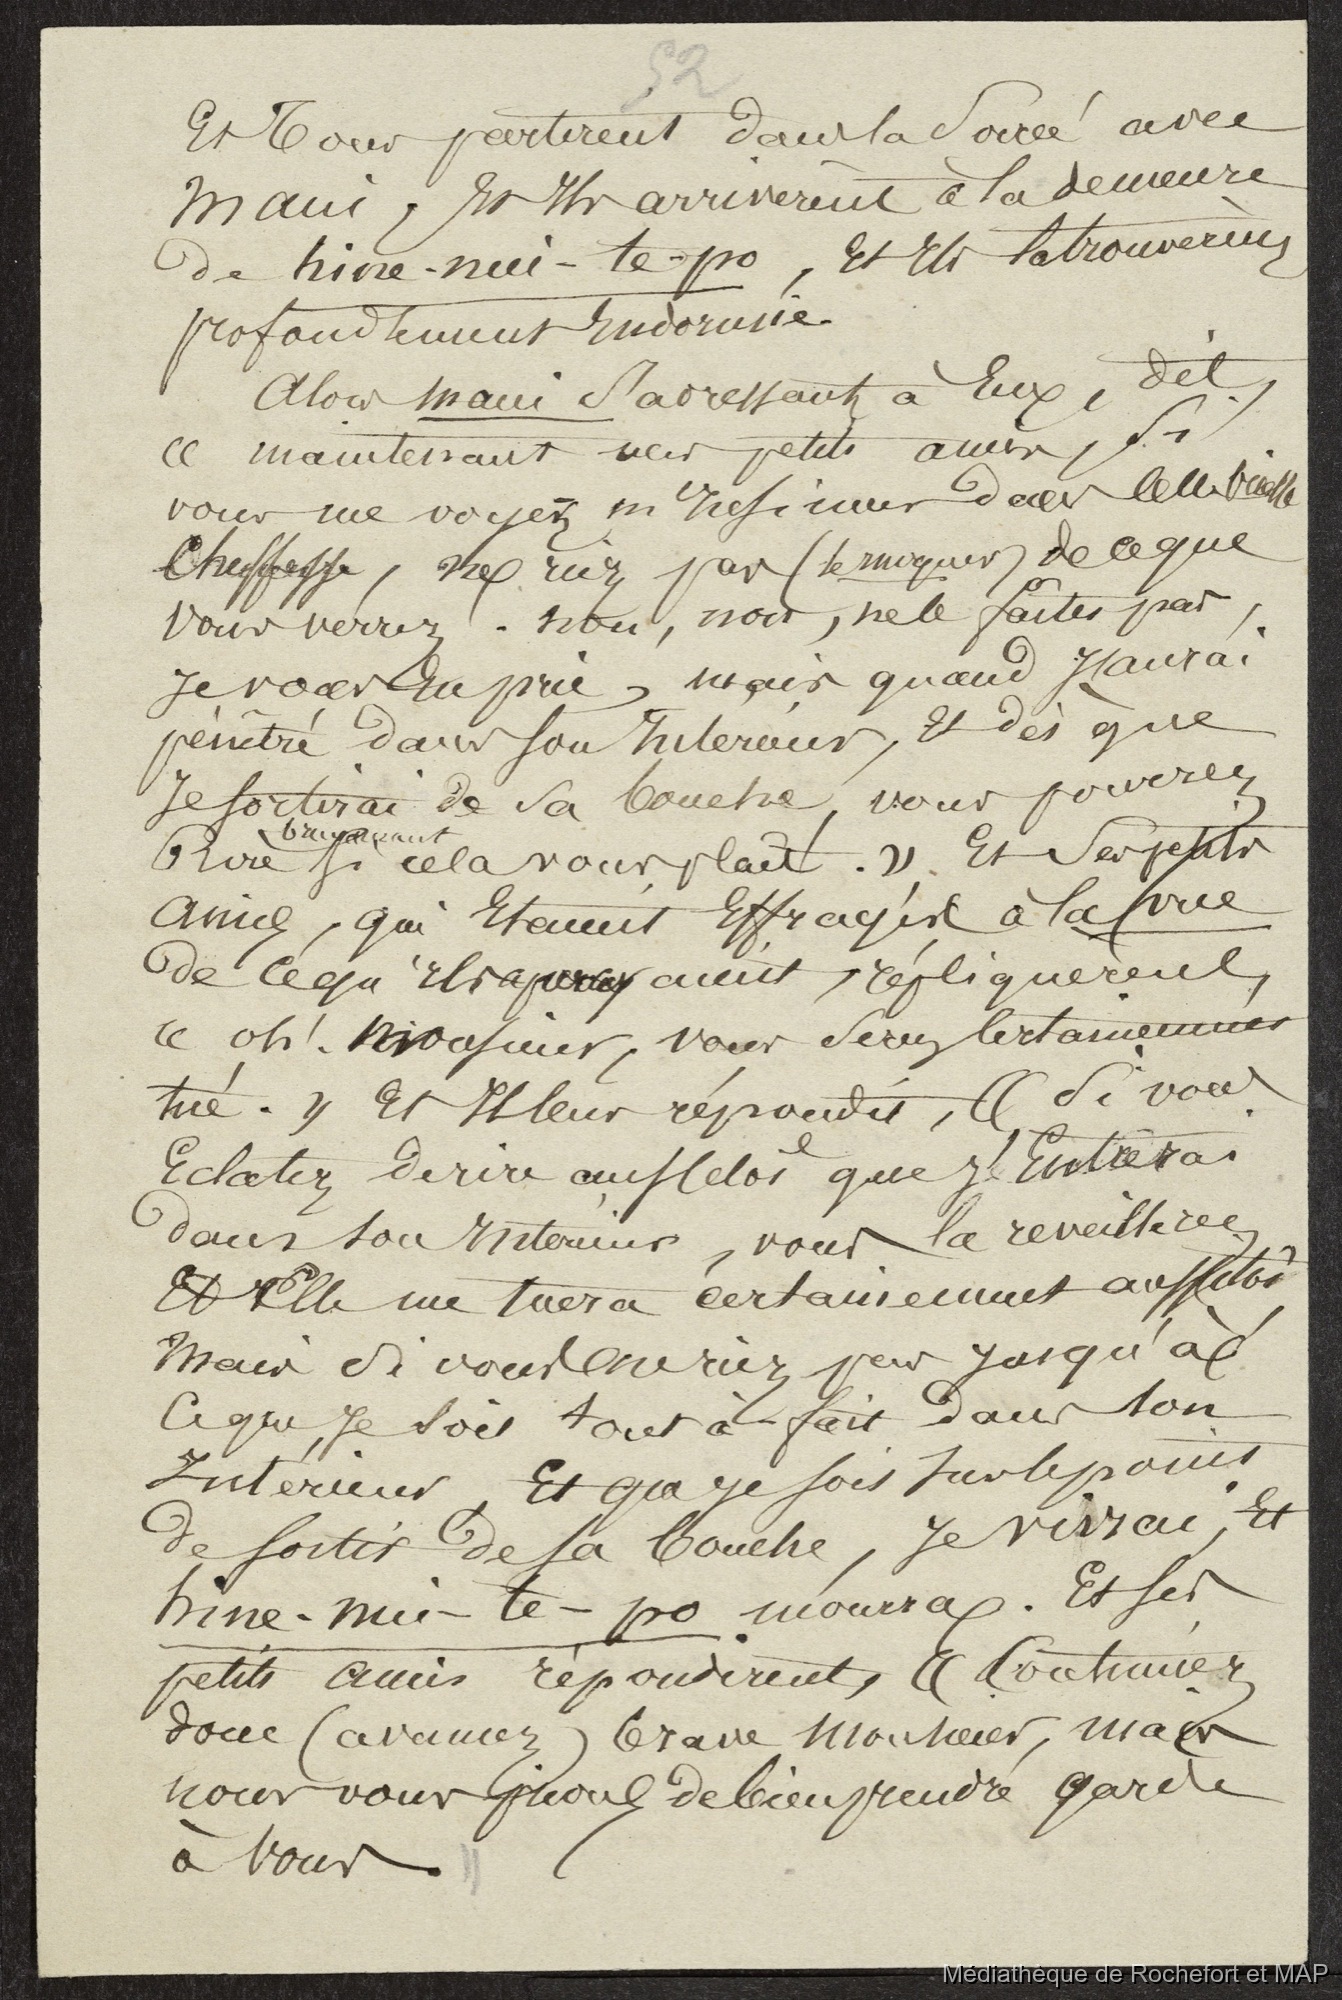 52
Et Tous partirent dans la Soirée avec
Maui, Et Ils arrivèrent à la demeure
de hine-nui-te-po, Et Ils la trouvèrent
profondhement Endormie.
Alors Maui S'adressant à Eux, dit,
« maintenant mes petits amis, Si
vous me voyez m'Insinuer dans cette vieille
Cheffesse, ne riez pas (se moquer) de ce que
vous verrez. non, non, ne le faites pas,
Je vous En prie, mais quand J'aurai
pénétré dans son Intérieur, Et dès que
Je sortirai de sa bouche, vous pourrez
bruyamment
Rire si cela vous plait. » Et Ses petits
Amis, qui Etaient Effrayés à la vue
de ce qu'Ils apercevaient, répliquèrent,
« oh! Monsieur, vous Serez certainement
tué. » Et Il leur répondit, « Si vous
Eclatez de rire aussitôt que J'Entrerai
dans son Intérieur, vous la reveillerez
Et Elle me tuera certainement aussitôt
Mais Si vous ne riez pas jusqu'à
Ce que Je sois tout à-fait dans son
Intérieur, Et que je sois sur le point
de sortir de sa bouche, Je vivrai, Et
hine-nui-te-po mourra. Et ses
petits amis répondirent, « Continuez
donc (avancez) brave Monsieur, mais
nous vous prions de bien prendre garde
à vous. »
Médiathèque de Rochefort et MAP